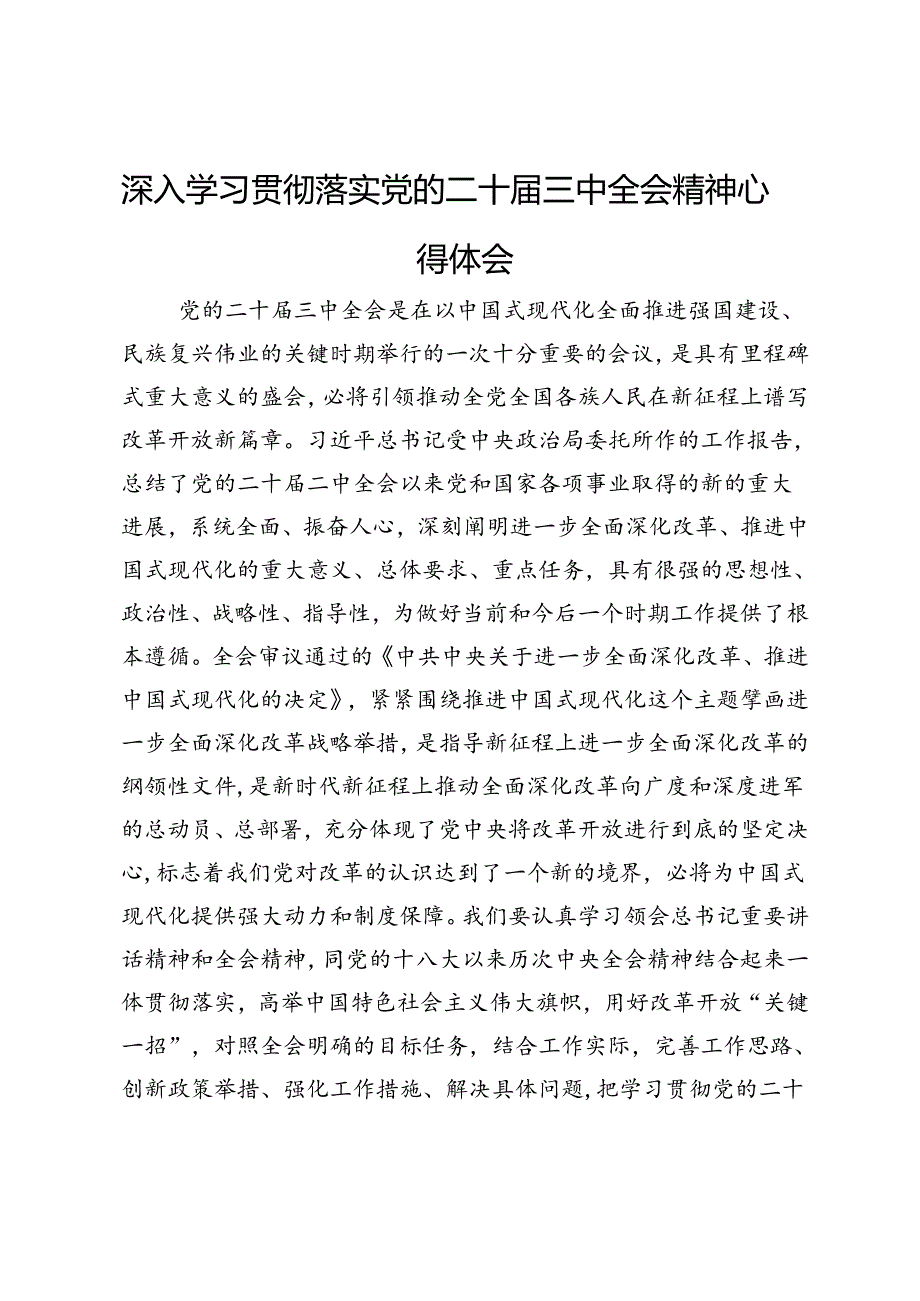 深入学习贯彻落实党的二十届三中全会精神心
得体会
党的二十届三中全会是在以中国式现代化全面推进强国建设、
民族复兴伟业的关键时期举行的一次十分重要的会议，是具有里程碑
式重大意义的盛会，必将引领推动全党全国各族人民在新征程上谱写
改革开放新篇章。习近平总书记受中央政治局委托所作的工作报告，
总结了党的二十届二中全会以来党和国家各项事业取得的新的重大
进展，系统全面、振奋人心，深刻阐明进一步全面深化改革、推进中
国式现代化的重大意义、总体要求、重点任务，具有很强的思想性、
政治性、战略性、指导性，为做好当前和今后一个时期工作提供了根
本遵循。全会审议通过的《中共中央关于进一步全面深化改革、推进
中国式现代化的决定》，紧紧围绕推进中国式现代化这个主题擘画进
一步全面深化改革战略举措，是指导新征程上进一步全面深化改革的
纲领性文件,是新时代新征程上推动全面深化改革向广度和深度进军
的总动员、总部署，充分体现了党中央将改革开放进行到底的坚定决
心,标志着我们党对改革的认识达到了一个新的境界，必将为中国式
现代化提供强大动力和制度保障。我们要认真学习领会总书记重要讲
话精神和全会精神,同党的十八大以来历次中央全会精神结合起来一
体贯彻落实，高举中国特色社会主义伟大旗帜，用好改革开放“关键
一招”，对照全会明确的目标任务，结合工作实际，完善工作思路、
创新政策举措、强化工作措施、解决具体问题,把学习贯彻党的二十